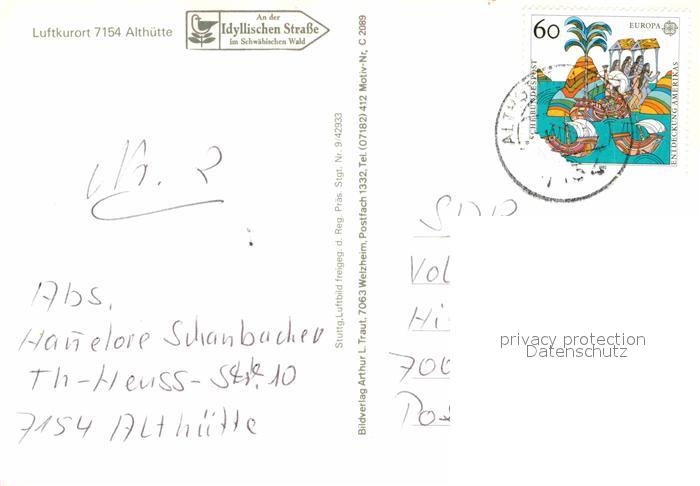 Luftkurort 7154 Althütte
An der
Idyllischen Straße
im Schwäbischen Wald
Nr. 2
Abs.
Hañelore Schanbacher
Th-Heuss-Str. 10
7154 Althütte
Stuttg. Luftbild freigeg. d. Reg. Präs. Stgt. Nr. 9/42933
Bildverlag Arthur L. Traut, 7063 Welzheim, Postfach 1332, Tel. (07182) 412 Motiv-Nr. C 2089
60
EUROPA
ENTDECKUNG AMERIKAS
SDR
Vol
Hi
700
Pos
privacy protection
Datenschutz